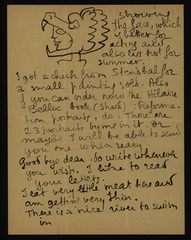 showing
the face, which
is better for
acting and
also too hot for
summer.
I got a check from Stendhal for
a small painting sold. Also
if you can order now the Hilaire
Belloc book (check) : Reforma-
tion portraits, do : There are
23 portraits by me in it or
maybe I will be able to send
you one when ready
Good bye dear, do write whenever
you wish. I like to read
your letters.
I eat very little meat here and
am getting very thin.
There is a nice river to swim
in